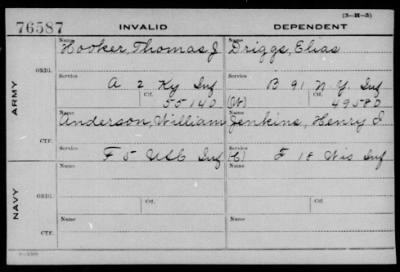 (3-H-3)
76587 INVALID DEPENDENT
ARMY
ORIG.
Name Name
Hooker, Thomas J Driggs, Elias
Service Service
A 2 Ky Inf B 91 N.Y. Inf
Ctf. Ctf.
55140 (W) 49580
CTF.
Name Name
Anderson, William Jenkins, Henry I
Service Service
F 5 USC Inf (C) F 18 Wis Inf
NAVY
ORIG.
Name Name
Service Ctf. Service Ctf.
CTF.
Name Name
Service Service